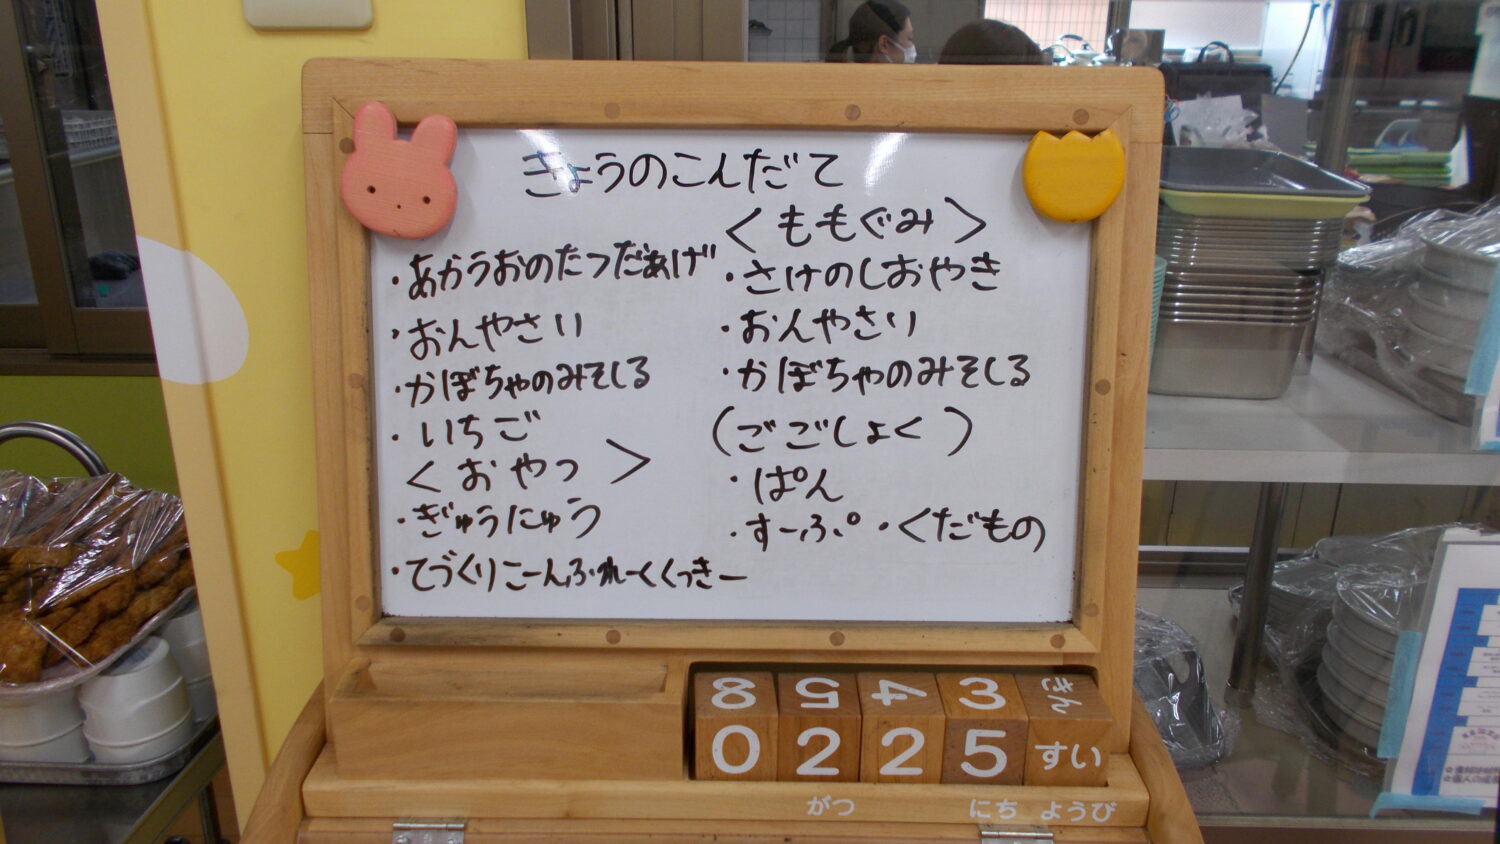 きょうのこんだて
・あかうおのたつだあげ
・おんやさい
・かぼちゃのみそしる
・いちご
＜おやつ＞
・ぎゅうにゅう
・てづくりこーんふれーくくっきー
＜ももぐみ＞
・さけのしおやき
・おんやさい
・かぼちゃのみそしる
（ごごしょく）
・ぱん
・すーぷ・くだもの
8 5 4 3 きん
0 2 2 5 すい
がつ にち ようび